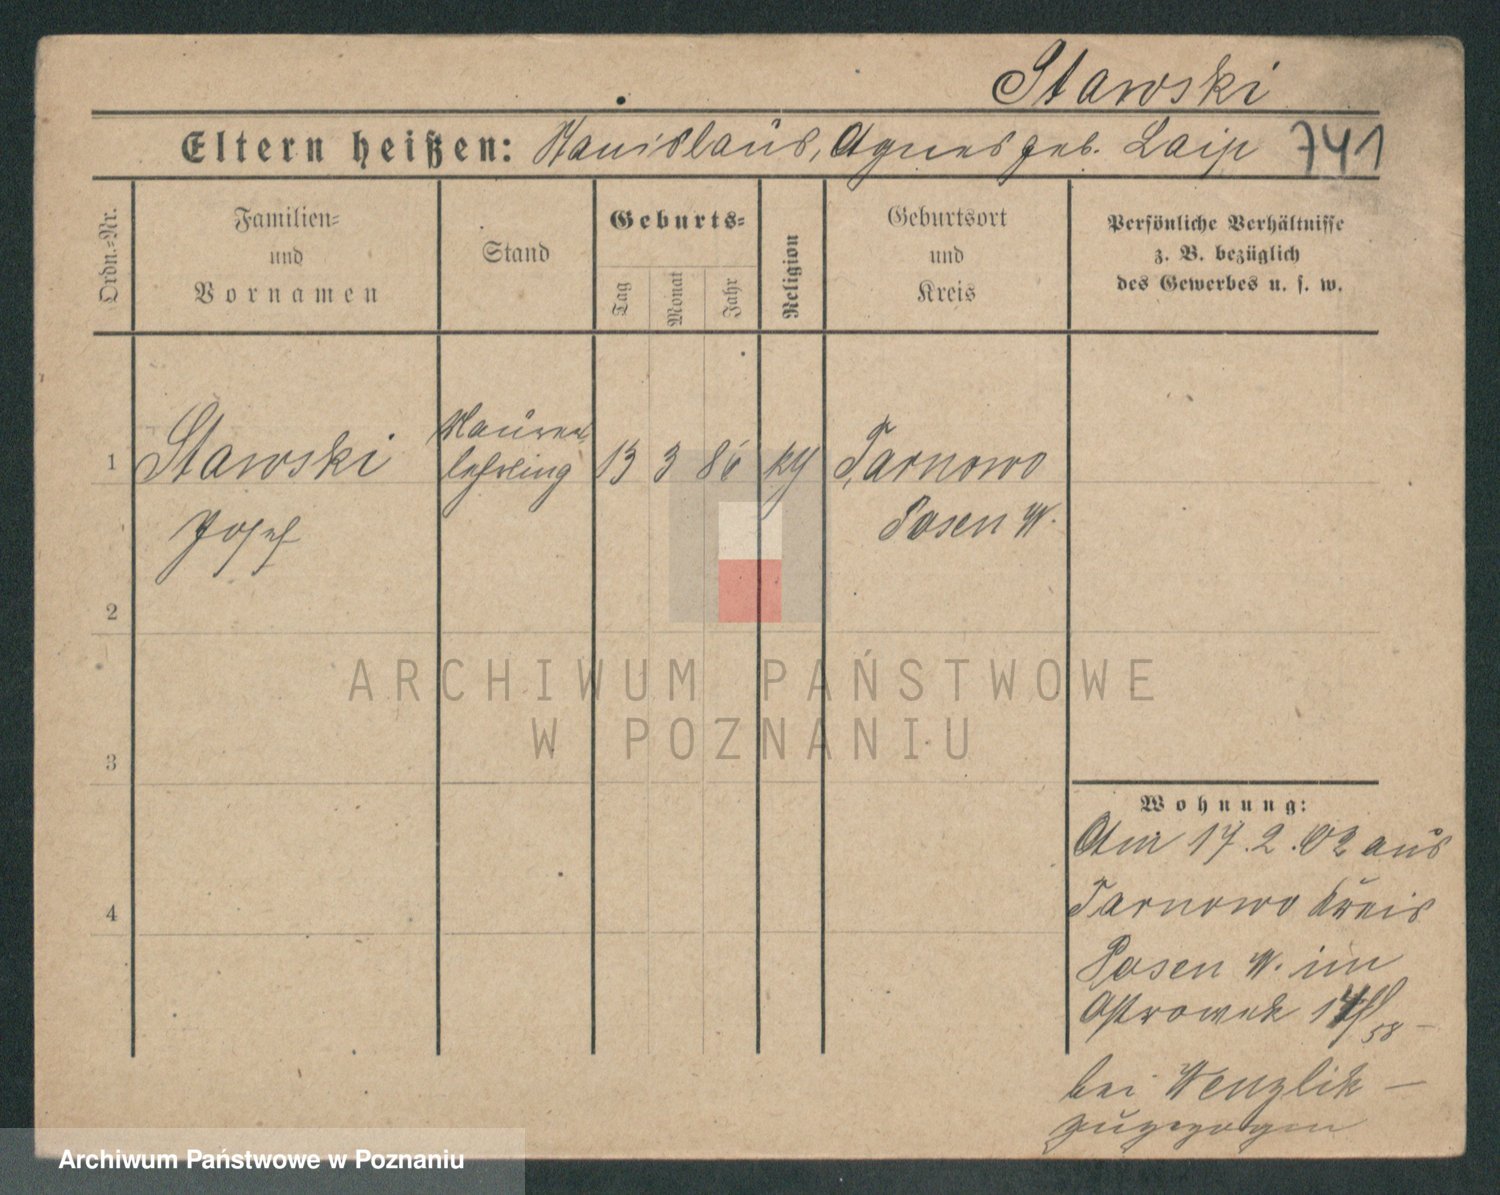 Stawski
Eltern heißen: Stanislaus, Agnes geb. Laip 741
Ordn.-Nr.
Familien-
und
Vornamen
Stand
Geburts-
Tag
Monat
Jahr
Religion
Geburtsort
und
Kreis
Persönliche Verhältnisse
z. B. bezüglich
des Gewerbes u. s. w.
1 Stawski Maurer 13 3 86 kth Tarnowo
lehrling
Josef Posen W.
2
3
4
ARCHIWUM PAŃSTWOWE
W POZNANIU
Wohnung:
Am 17.2.02 aus
Tarnowo Kreis
Posen W. im
Ostrowek
bei Wenzlik –
zugezogen
Archiwum Państwowe w Poznaniu